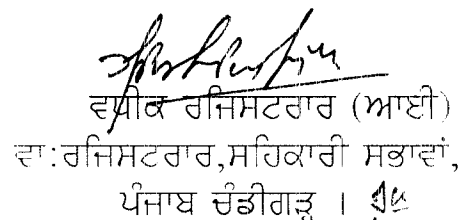 ਵਧੀਕ ਰਜਿਸਟਰਾਰ (ਆਈ)
ਵਾ:ਰਜਿਸਟਰਾਰ,ਸਹਿਕਾਰੀ ਸਭਾਵਾਂ,
ਪੰਜਾਬ ਚੰਡੀਗੜ੍ਹ ।